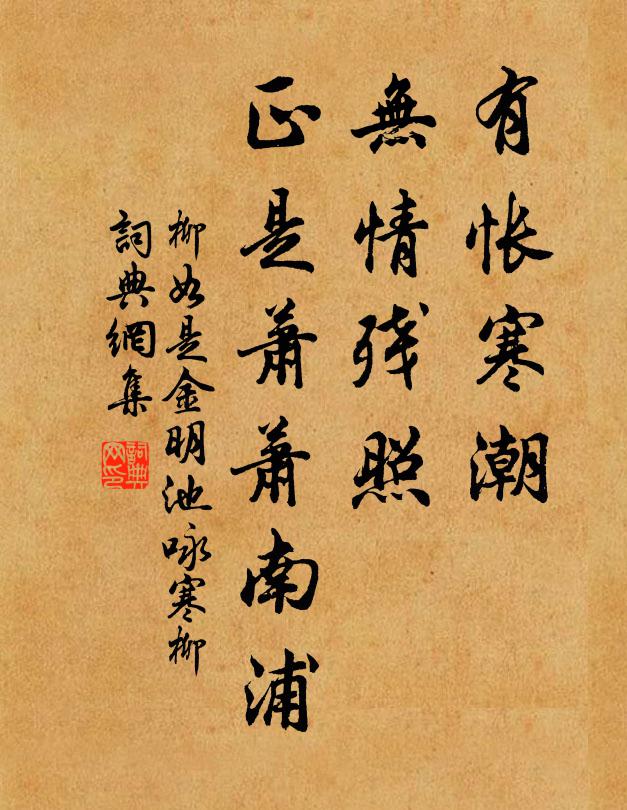 有悵寒潮
無情殘照
正是蕭蕭南浦
柳如是金明池咏寒柳
詞典網集
詞典網印